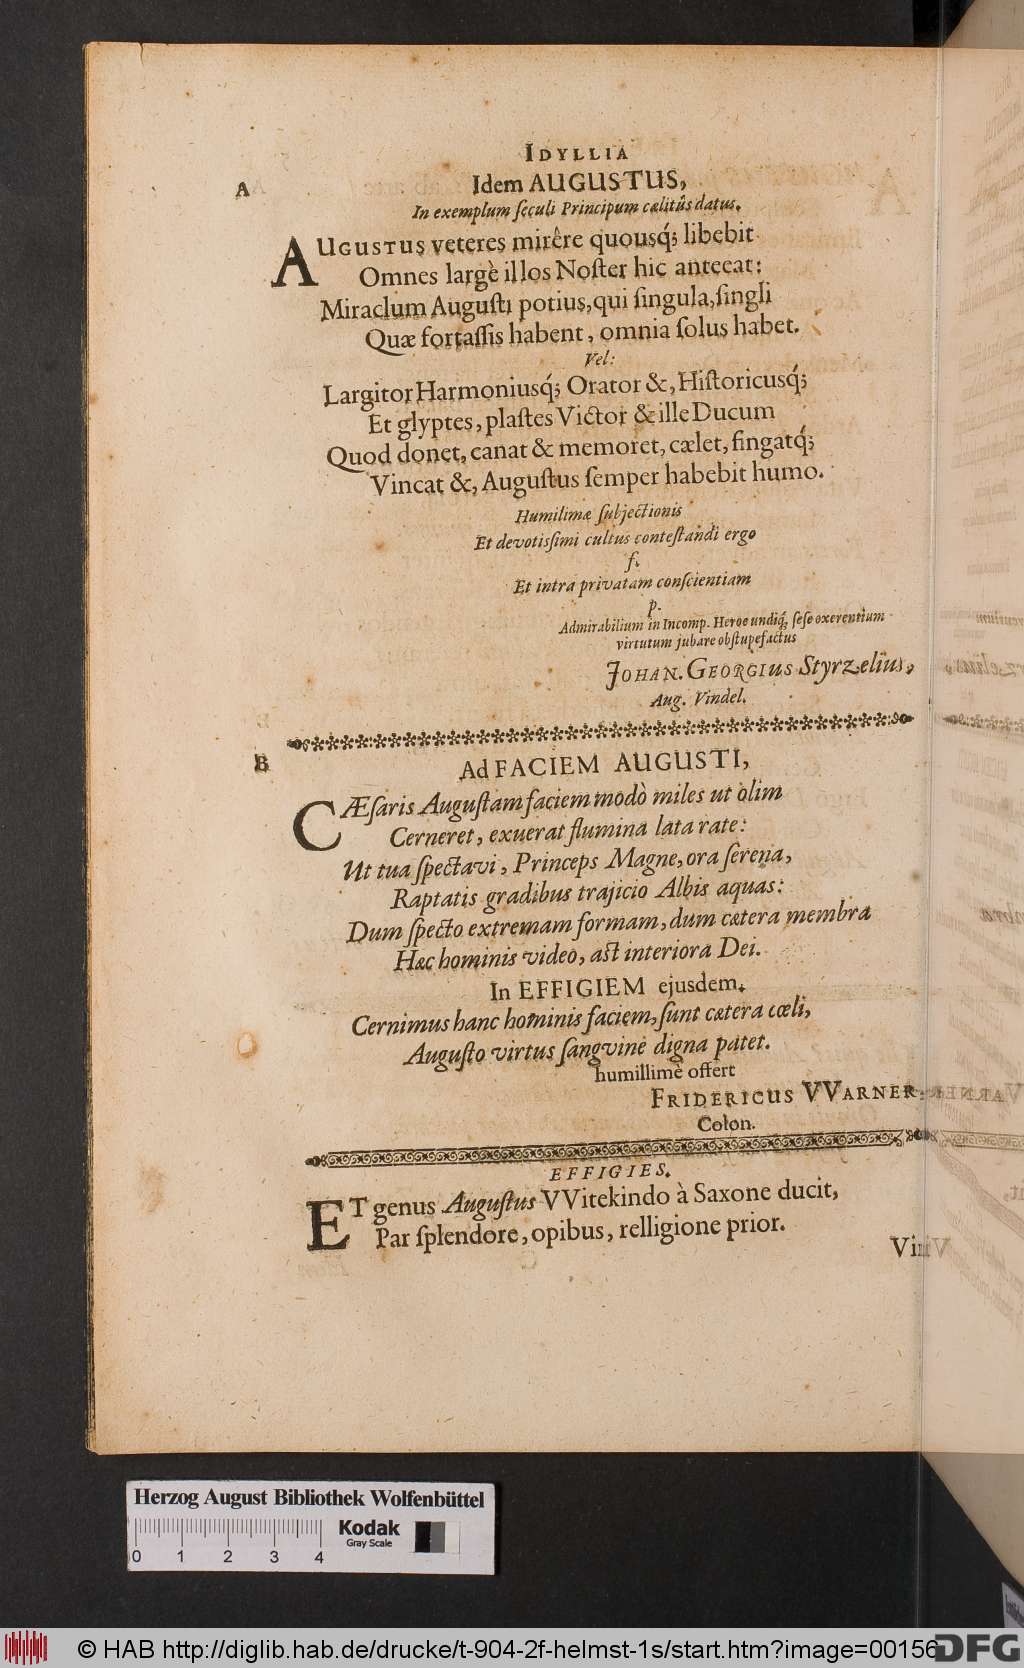 IDYLLIA
A
Idem AUGUSTUS,
In exemplum seculi Principum cælitûs datus.
AUGUSTUS veteres mirêre quousq́; libebit
Omnes largè illos Noster hic anteeat:
Miraclum Augusti potius, qui singula, singli
Quæ fortassis habent, omnia solus habet.
Vel:
Largitor Harmoniusq́; Orator &, Historicusq́;
Et glyptes, plastes Victor & ille Ducum
Quod donet, canat & memoret, cælet, fingatq́;
Vincat &, Augustus semper habebit humo.
Humilimæ subjectionis
Et devotissimi cultus contestandi ergo
f.
Et intra privatam conscientiam
p.
Admirabilium in Incomp. Heroe undiq́, sese oxerentium
virtutum jubare obstupefactus
JOHAN. GEORGIUS Styrzelius,
Aug. Vindel.
B
Ad FACIEM AUGUSTI,
CÆsaris Augustam faciem modò miles ut olim
Cerneret, exuerat flumina lata rate:
Ut tua spectavi, Princeps Magne, ora serena,
Raptatis gradibus trajicio Albis aquas:
Dum specto extremam formam, dum cætera membra
Hæc hominis video, ast interiora Dei.
In EFFIGIEM ejusdem.
Cernimus hanc hominis faciem, sunt cætera cœli,
Augusto virtus sangvine digna patet.
humillimè offert
FRIDERICUS VVARNER
Colon.
EFFIGIES.
ET genus Augustus VVitekindo à Saxone ducit,
Par splendore, opibus, relligione prior.
Herzog August Bibliothek Wolfenbüttel
Kodak
Gray Scale
0 1 2 3 4
© HAB http://diglib.hab.de/drucke/t-904-2f-helmst-1s/start.htm?image=00156
DFG